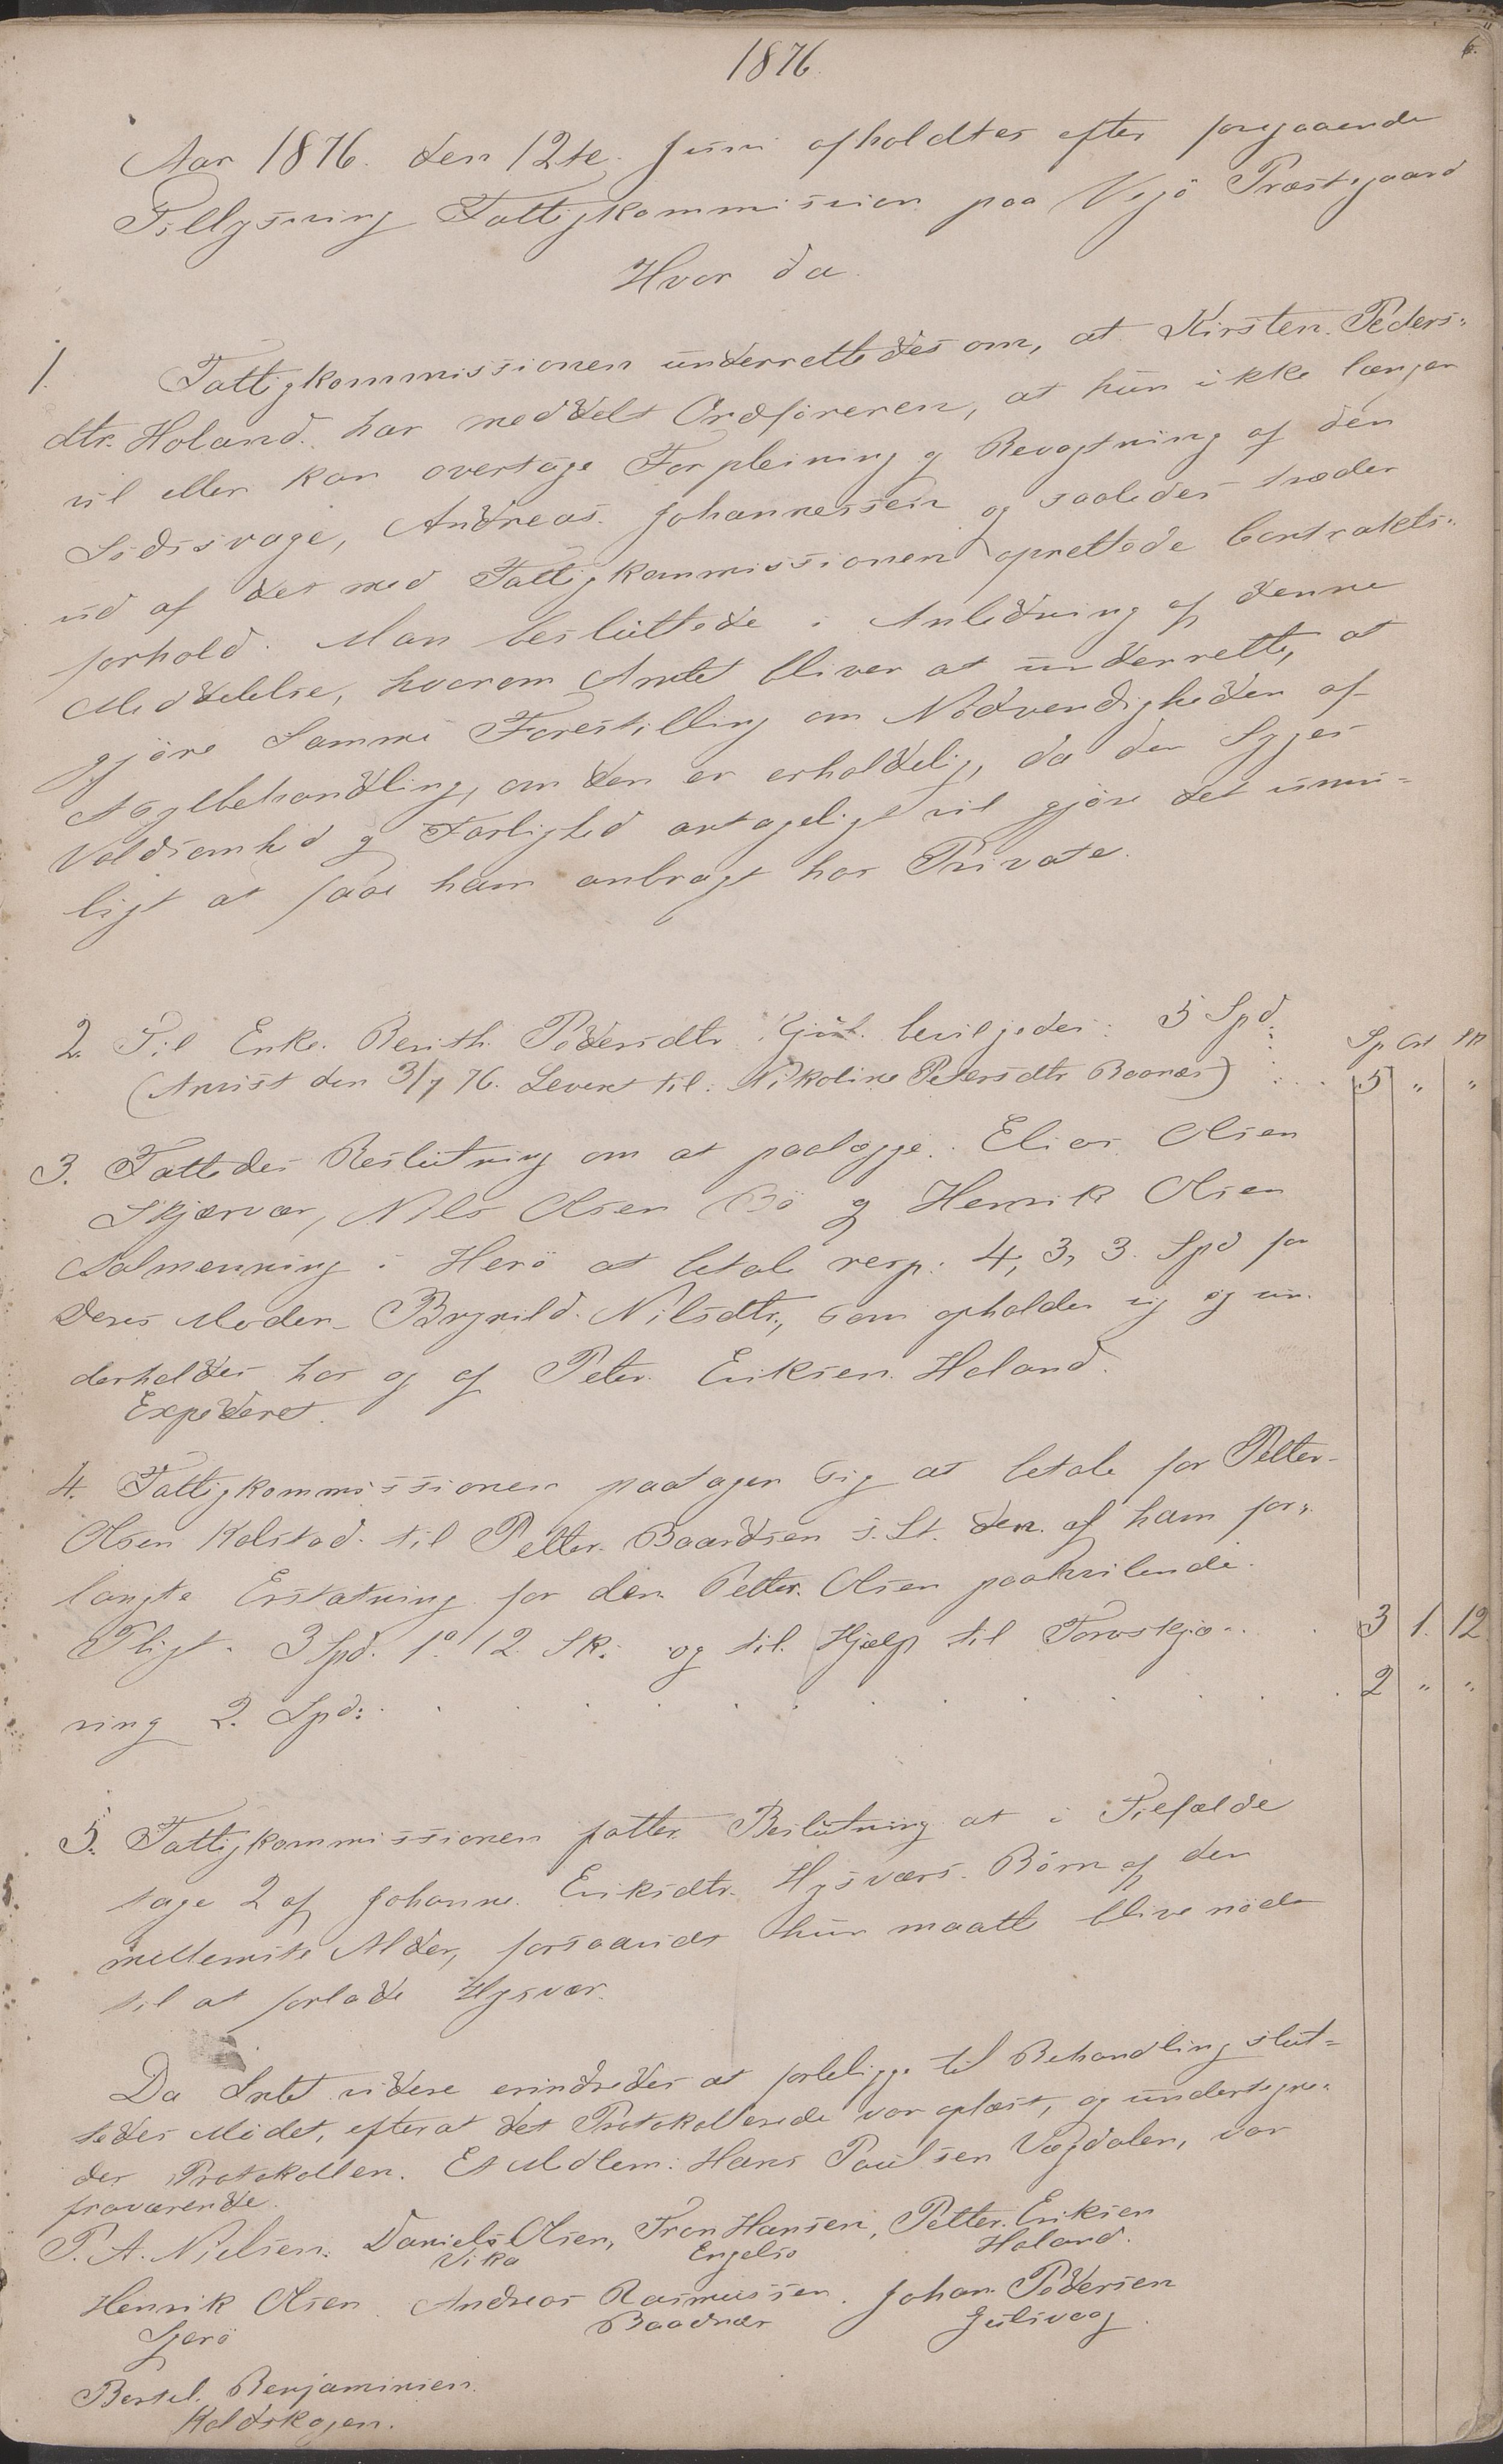 6.
1876.
Aar 1876. den 12te. Juni afholdtes efter foregaaende
Tillysning Fattigkommission paa Vejö Præstegaard
Hvor da.
1. Fattigkommissionen underrettedes om, at Kirsten Peders-
dtr. Holand. har meddelt Ordföreren, at hun ikke længer
vil eller kan overtage Forpleining og Bevogtning af den
Sidssvage, Andreas Johannessen og saaledes træder
ud af det med Fattigkommissionen oprettede Contrakts-
forhold. Man besluttede i Anledning af denne
Meddelelse, hvorom Amtet bliver at underrette, at
gjöre Samme Forestilling om Nödvendigheden af
Asylbehandling, om den er erholdelig, da den Syges
Voldsomhed og Farlighed antageligt vil gjöre det umu-
ligt at faae ham anbragt hos Private.
2. Til Enke Berith Pedersdtr bevilgedes: 5 Spd.
Sp Ort Sk
(Anvist den 3/7 76. Leveret til Nikoline Petersdtr Baanes) 5 " "
3. Fattedes Beslutning om at paalægge Elias Olsen
Skjærvær, Nils Olsen Bö og Henrik Olsen
Salmenning i Herö at betale resp: 4, 3, 3. Spd for
Deres Moder Brynild Nilsdtr., som opholder sig og un-
derholdes hos og af Peter Eriksen Holand.
Expederet.
4. Fattigkommissionen paatager sig at betale for Petter
Olsen Kolstad til Petter Baardsen s. St. den af ham for-
langte Erstatning for den Petter Olsen paahvilende
Pligt. 3 Spd. 1o 12. Sk: og til Hjælp til Torvskjæ- 3 1. 12
ring 2. Spd: 2 " "
5. Fattigkommissionen fatter Beslutning at i Tilfælde
tage 2 af Johanne Eriksdtr. Hysværs Börn af den
mellemste Alder, forsaavidt hun maatte blive nöde
til at forlade Hysvær.
Da Intet videre erindredes at forelegge til Behandling slut-
tedes Mödet, efterat det Protokollerede var oplæst, og undertegne-
des Protokollen. Et Medlem: Hans Paulsen Vægdalen, var
fraværende.
P. A. Nielsen. Daniel Olsen, Tron Hansen, Petter Eriksen
Vika Engelsö Holand.
Henrik Olsen Andreas Rasmussen. Johan Pedersen
Igerö Baadvær Julivaag.
Bertel Benjaminsen
Koldskogen.